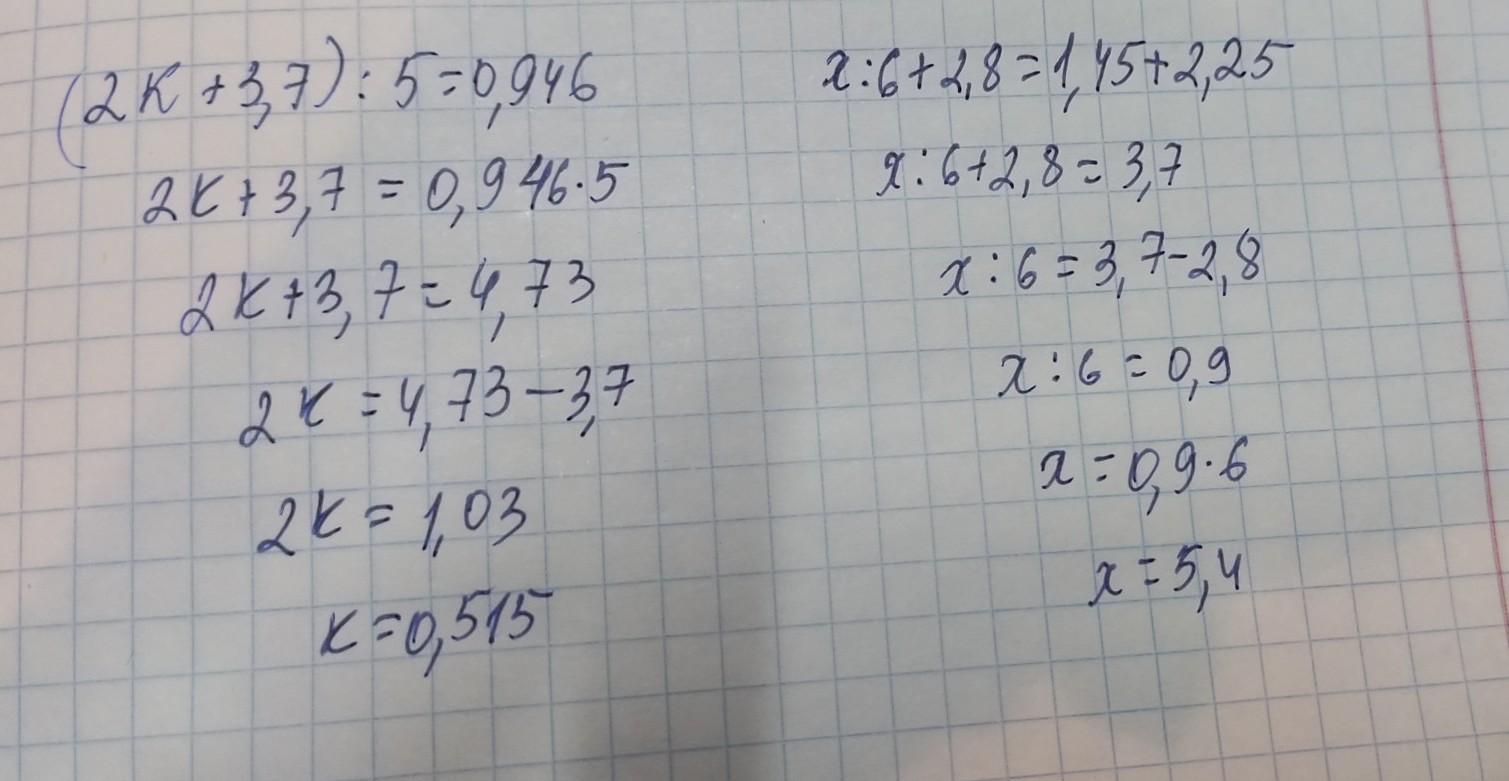 (2к+3,7):5=0,946
2к+3,7=0,946·5
2к+3,7=4,73
2к=4,73-3,7
2к=1,03
к=0,515
x:6+2,8=1,45+2,25
x:6+2,8=3,7
x:6=3,7-2,8
x:6=0,9
x=0,9·6
x=5,4